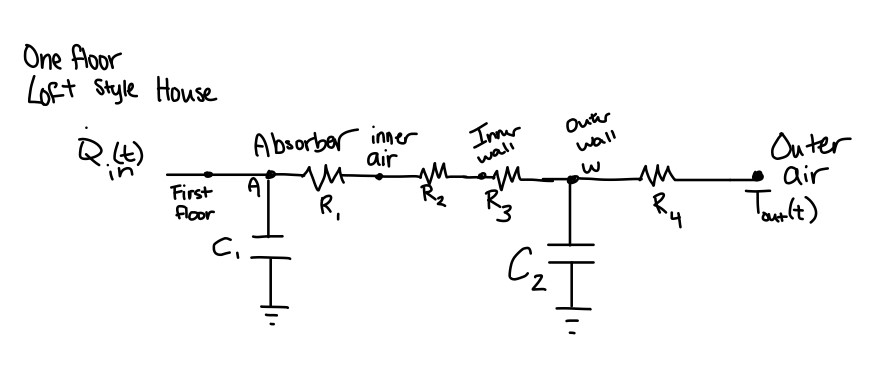 One floor
Loft style House
Q̇in(t)
First
floor
A
Absorber
R1
C1
inner
air
R2
Inner
wall
R3
outer
wall
w
C2
R4
Outer
air
Tout(t)